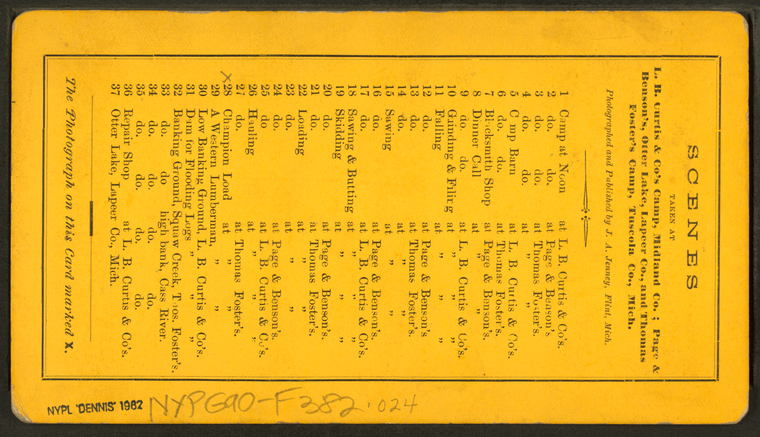 SCENES
TAKEN AT
L. B. Curtis & Co's Camp, Midland Co.; Page &
Benson's, Otter Lake, Lapeer Co., and Thomas
Foster's Camp, Tuscola Co., Mich.
Photographed and Published by J. A. Jenney, Flint, Mich.
1 Camp at Noon at L. B. Curtis & Co's.
2 do. do. at Page & Benson's
3 do. do. at Thomas Foster's.
4 do. do. at " "
5 Camp Barn at L. B. Curtis & Co's.
6 do. do. at Thomas Foster's.
7 Blacksmith Shop at Page & Benson's.
8 Dinner Call at " "
9 do. do. at L. B. Curtis & Co's.
10 Grinding & Filing at " "
11 Falling at " "
12 do. at Page & Benson's
13 do. at Thomas Foster's.
14 do. at " "
15 Sawing at " "
16 do. at Page & Benson's.
17 do. at L. B. Curtis & Co's.
18 Sawing & Butting at " " "
19 Skidding at " " "
20 do. at Page & Benson's.
21 do. at Thomas Foster's.
22 Loading at " "
23 do. at " "
24 do. at Page & Benson's.
25 do at L. B. Curtis & Co's.
26 Hauling at " " "
27 do. at Thomas Foster's.
X28 Champion Load at " "
29 A Western Lumberman, " "
30 Low Banking Ground, L. B. Curtis & Co's.
31 Dam for Flooding Logs " " " "
32 Banking Ground, Squaw Creek, Thos. Foster's.
33 do do high bank, Cass River.
34 do. do. do. do.
35 do. do. do. do.
36 Repair Shop at L. B. Curtis & Co's.
37 Otter Lake, Lapeer Co., Mich.
The Photograph on this Card marked X.
NYPL "DENNIS" 1982
NYPG90-F382.024